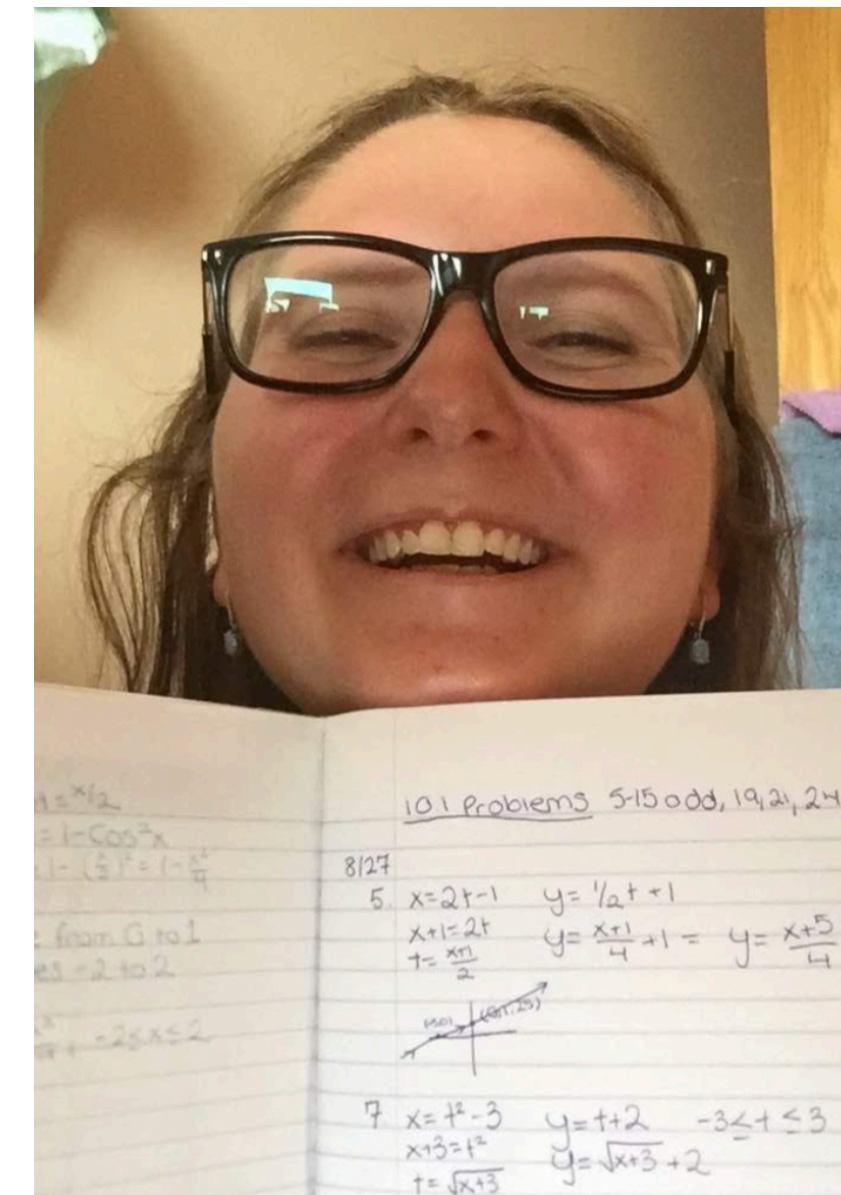 = x/2
= 1-Cos²x
= 1-(x/2)² = 1-x²/4
from 0 to 1
-2 to 2
-2≤x≤2
10.1 Problems 5-15 odd, 19, 21, 24
8/27
5. x=2t-1 y=1/2t+1
x+1=2t y=x+1/4+1= y=x+5/4
t=x+1/2
7 x=t²-3 y=t+2 -3≤t≤3
x+3=t² y=√x+3+2
t=√x+3